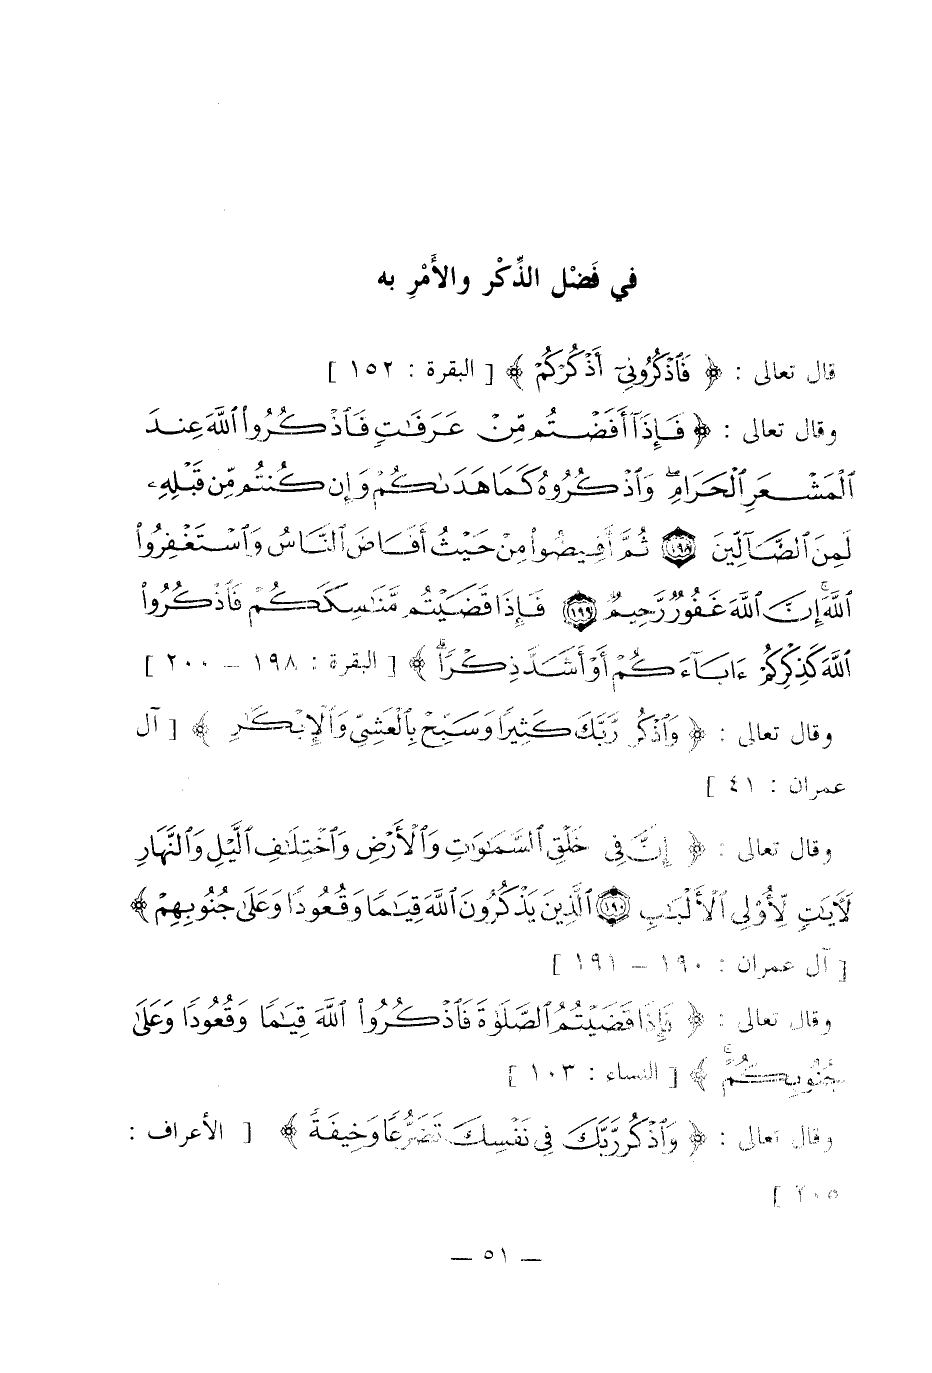 في فَضْل الذِّكْر والأَمْرِ به
قال تعالى : ﴿ فَٱذْكُرُونِىٓ أَذْكُرْكُمْ ﴾ [ البقرة : ١٥٢ ]
وقال تعالى : ﴿ فَإِذَآ أَفَضْتُم مِّنْ عَرَفَٰتٍ فَٱذْكُرُوا۟ ٱللَّهَ عِندَ
ٱلْمَشْعَرِ ٱلْحَرَامِ ۖ وَٱذْكُرُوهُ كَمَا هَدَىٰكُمْ وَإِن كُنتُم مِّن قَبْلِهِۦ
لَمِنَ ٱلضَّآلِّينَ ١٩٨ ثُمَّ أَفِيضُوا۟ مِنْ حَيْثُ أَفَاضَ ٱلنَّاسُ وَٱسْتَغْفِرُوا۟
ٱللَّهَ ۚ إِنَّ ٱللَّهَ غَفُورٌ رَّحِيمٌ ١٩٩ فَإِذَا قَضَيْتُم مَّنَٰسِكَكُمْ فَٱذْكُرُوا۟
ٱللَّهَ كَذِكْرِكُمْ ءَابَآءَكُمْ أَوْ أَشَدَّ ذِكْرًا ۗ ﴾ [ البقرة : ١٩٨ – ٢٠٠ ]
وقال تعالى : ﴿ وَٱذْكُر رَّبَّكَ كَثِيرًا وَسَبِّحْ بِٱلْعَشِىِّ وَٱلْإِبْكَٰرِ ﴾ [ آل
عمران : ٤١ ]
وقال تعالى : ﴿ إِنَّ فِى خَلْقِ ٱلسَّمَٰوَٰتِ وَٱلْأَرْضِ وَٱخْتِلَٰفِ ٱلَّيْلِ وَٱلنَّهَارِ
لَءَايَٰتٍ لِّأُو۟لِى ٱلْأَلْبَٰبِ ١٩٠ ٱلَّذِينَ يَذْكُرُونَ ٱللَّهَ قِيَٰمًا وَقُعُودًا وَعَلَىٰ جُنُوبِهِمْ ﴾
[ آل عمران : ١٩٠ – ١٩١ ]
وقال تعالى : ﴿ فَإِذَا قَضَيْتُمُ ٱلصَّلَوٰةَ فَٱذْكُرُوا۟ ٱللَّهَ قِيَٰمًا وَقُعُودًا وَعَلَىٰ
جُنُوبِكُمْ ۚ ﴾ [ النساء : ١٠٣ ]
وقال تعالى : ﴿ وَٱذْكُر رَّبَّكَ فِى نَفْسِكَ تَضَرُّعًا وَخِيفَةً ﴾ [ الأعراف :
٢٠٥ ]
– ٥١ –